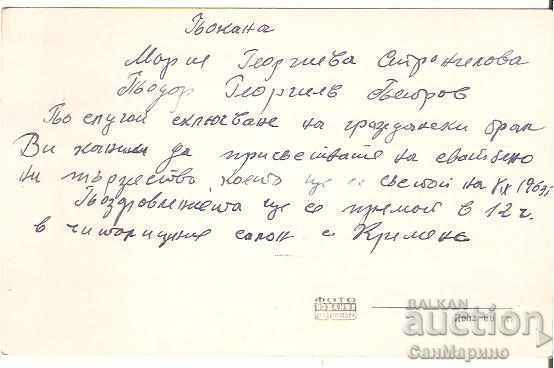 Покана
Мария Георгиева Стракилова
Тодор Георгиев Петров
По случай сключване на граждански брак
Ви каним да присъствате на сватбено
ни тържество, което ще се състои на
Поздравленията ще се приемат в 12 ч.
в читалищния салон с. Кремена
ФОТО
BALKAN
auction
СанМарино